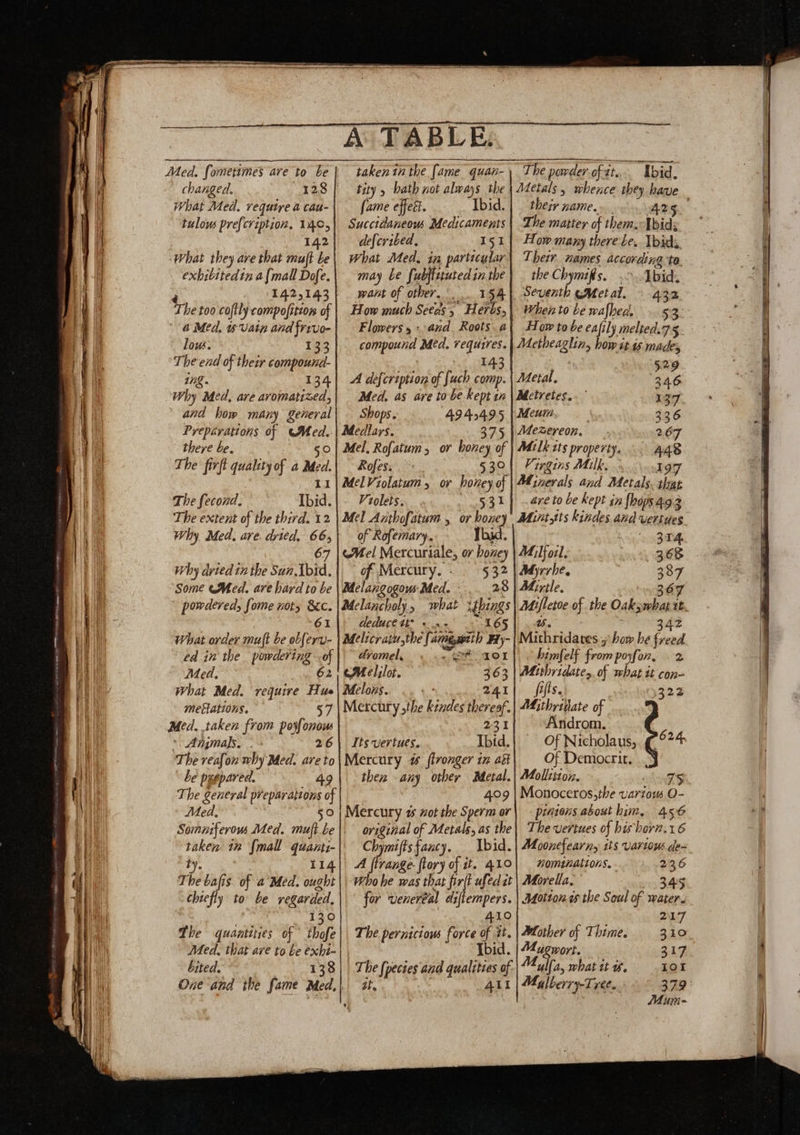 A TABLE.
Med. ſometimes are to be
changed. 128
What Med. require a cau-
tulous preſcription. 140,
142
What they are that muſt be
exhibited in a ſmall Doſe.
142,143
The too coſtly compoſition of
a Med. is vain and frivo-
lous. 133
The end of their compound-
ing. 134
Why Med. are aromatized,
and how many general
Preparations of Med.
there be. 50
The firſt quality of a Med.
11
The ſecond. Ibid.
The extent of the third. 12
Why Med. are dried. 66,
67
Why dried in the Sun. Ibid.
Some Med. are hard to be
powdered, ſome not, &c.
61
What order muſt be obſerv-
ed in the powdering of
Med. 62
What Med. require Hu-
mectations. 57
Med. taken from poyſonous
Animals. 26
The reaſon why Med. are to
be prepared. 49
The general preparations of
Med. 50
Somniferous Med. muſt be
taken in ſmall quanti-
ty. 114
The baſis of a Med. ought
chiefly to be regarded.
130
The quantities of thoſe
Med. that are to be exhi-
bited. 138
One and the ſame Med.
taken in the ſame quan-
tity, hath not always the
ſame effect. Ibid.
Succidaneous Medicaments
deſcribed. 151
What Med. in particular
may be ſubſtituted in the
want of other. 154
How much Seeds, Herbs,
Flowers, and Roots a
compound Med. requires.
143
A deſcription of ſuch comp.
Med. as are to be kept in
Shops. 494,495
Medlars. 375
Mel. Roſatum, or honey of
Roſes. 530
Mel Violatum, or honey of
Violets. 531
Mel Anthoſatum, or honey
of Roſemary. Ibid.
Mel Mercuriale, or honey
of Mercury. 532
Melangogous Med. 28
Melancholy, what things
deduce it. 165
Melicratu, the ſame with Hy-
dromel. 101
Melilot. 363
Melons. 241
Mercury, the kindes thereof.
231
Its vertues. Ibid.
Mercury is ſtronger in act
then any other Metal.
409
Mercury is not the Sperm or
original of Metals, as the
Chymiſts fancy. Ibid.
A ſtrange ſtory of it. 410
Who he was that firſt uſed it
for venereal diſtempers.
410
The pernicious force of it.
Ibid.
The ſpecies and qualities of
it. 411
The powder of it. Ibid.
Metals, whence they have
their name. 425
The matter of them. Ibid.
How many there be. Ibid.
Their names according to
the Chymiſts. Ibid.
Seventh Metal. 432
When to be waſhed. 53
How to be eaſily melted. 75
Metheaglin, how it is made,
529
Metal. 346
Metretes. 137
Meum. 336
Mezereon. 267
Milk its property. 448
Virgins Milk. 197
Minerals and Metals, that
are to be kept in ſhops 493
Mint, its kindes and vertues
314
Milfoil. 368
Myrrhe. 387
Mirtle. 367
Miſletoe of the Oak, what it
is. 342
Mithridates, how he freed
himſelf from poyſon. 2
Mithridate, of what it con-
ſiſts. 322
Mithridate of
Androm.
Of Nicholaus, 624
Of Democrit.
Mollition. 75
Monoceros, the various O-
pinions about him. 456
The vertues of his horn. 16
Moonfearn, its various de-
nominations. 236
Morella. 345
Motion is the Soul of water.
217
Mother of Thime. 310
Mugwort. 317
Mulſa, what it is. 101
Mulberry-Tree. 379
Mum-